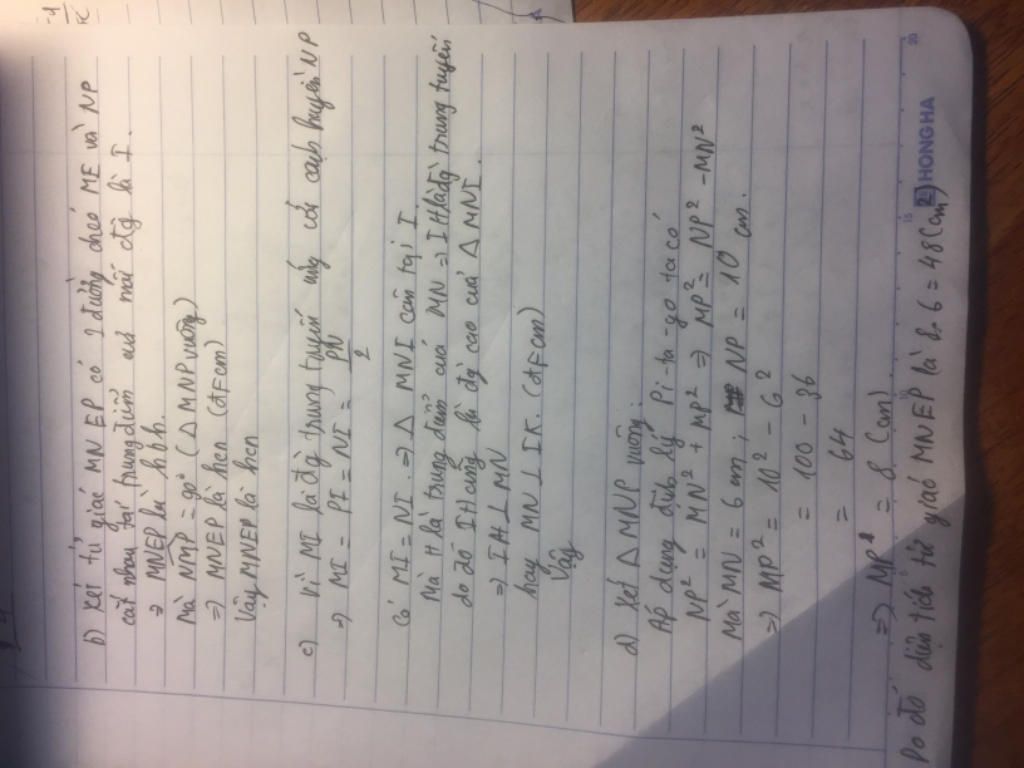 b) Xét tứ giác MNEP có 2 đường chéo ME và NP
cắt nhau tại trung điểm của mỗi đg là I.
⇒ MNEP là hbh.
Mà NMP = 90° (△ MNP vuông)
⇒ MNEP là hcn (đfcm)
Vậy MNEP là hcn
c) Vì MI là đg trung tuyến ứng với cạnh huyền NP
⇒ MI = PI = NI = PN/2
Có MI = NI. ⇒ △ MNI cân tại I
Mà H là trung điểm của MN ⇒ IH là đg trung tuyến
do đó IH cũng là đg cao của △ MNI.
⇒ IH ⊥ MN
hay MN ⊥ IK. (đfcm)
Vậy
d) Xét △ MNP vuông.
Áp dụng định lý Pi-ta-go ta có
NP² = MN² + MP² ⇒ MP² = NP² - MN²
Mà MN = 6 cm; NP = 10 cm.
⇒ MP² = 10² - 6²
= 100 - 36
= 64
⇒ MP = 8 (cm)
Do đó diện tích tứ giác MNEP là 8.6 = 48 (cm)
HONG HA
10
15
20